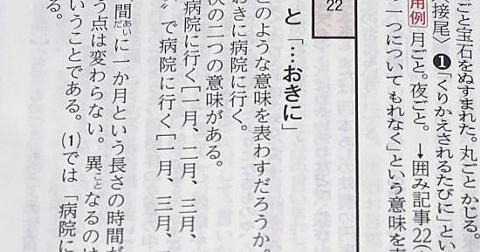 ごと宝石をぬすまれた。丸ごとかじる。
接尾〉❶「くりかえされるたびに」とい
用例 月ごと。夜ごと。→囲み記事22
一つについてもれなく」という意味を
22
と「…おきに」
どのような意味を表わすだろうか。
おきに病院に行く。
次の二つの意味がある。
病院に行く[一月、二月、三月、
〟で病院に行く[一月、三月、
間に一か月という長さの時間が
う点は変わらない。異なるのは
いうことである。(1)では「病院に
る。